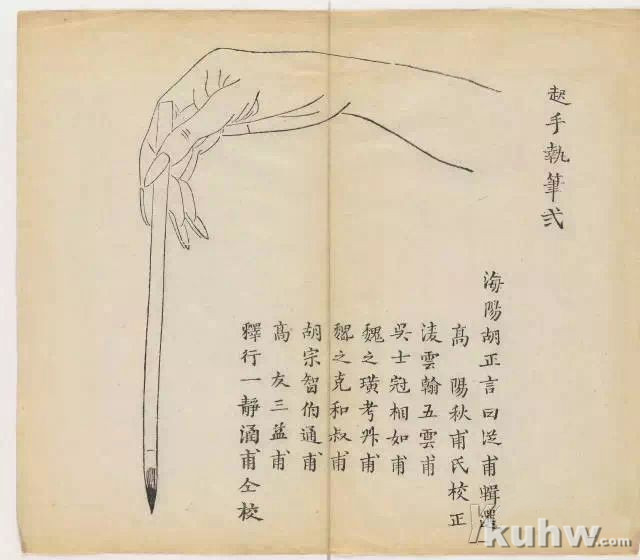 起手執筆弍
海陽胡正言曰從甫輯
高陽秋甫氏校正
淩雲翰五雲甫
吳士冠相如甫
魏之璜考叔甫
魏之克和叔甫
胡宗智伯通甫
高友三益甫
釋行一靜涵甫仝校
kuhw.com